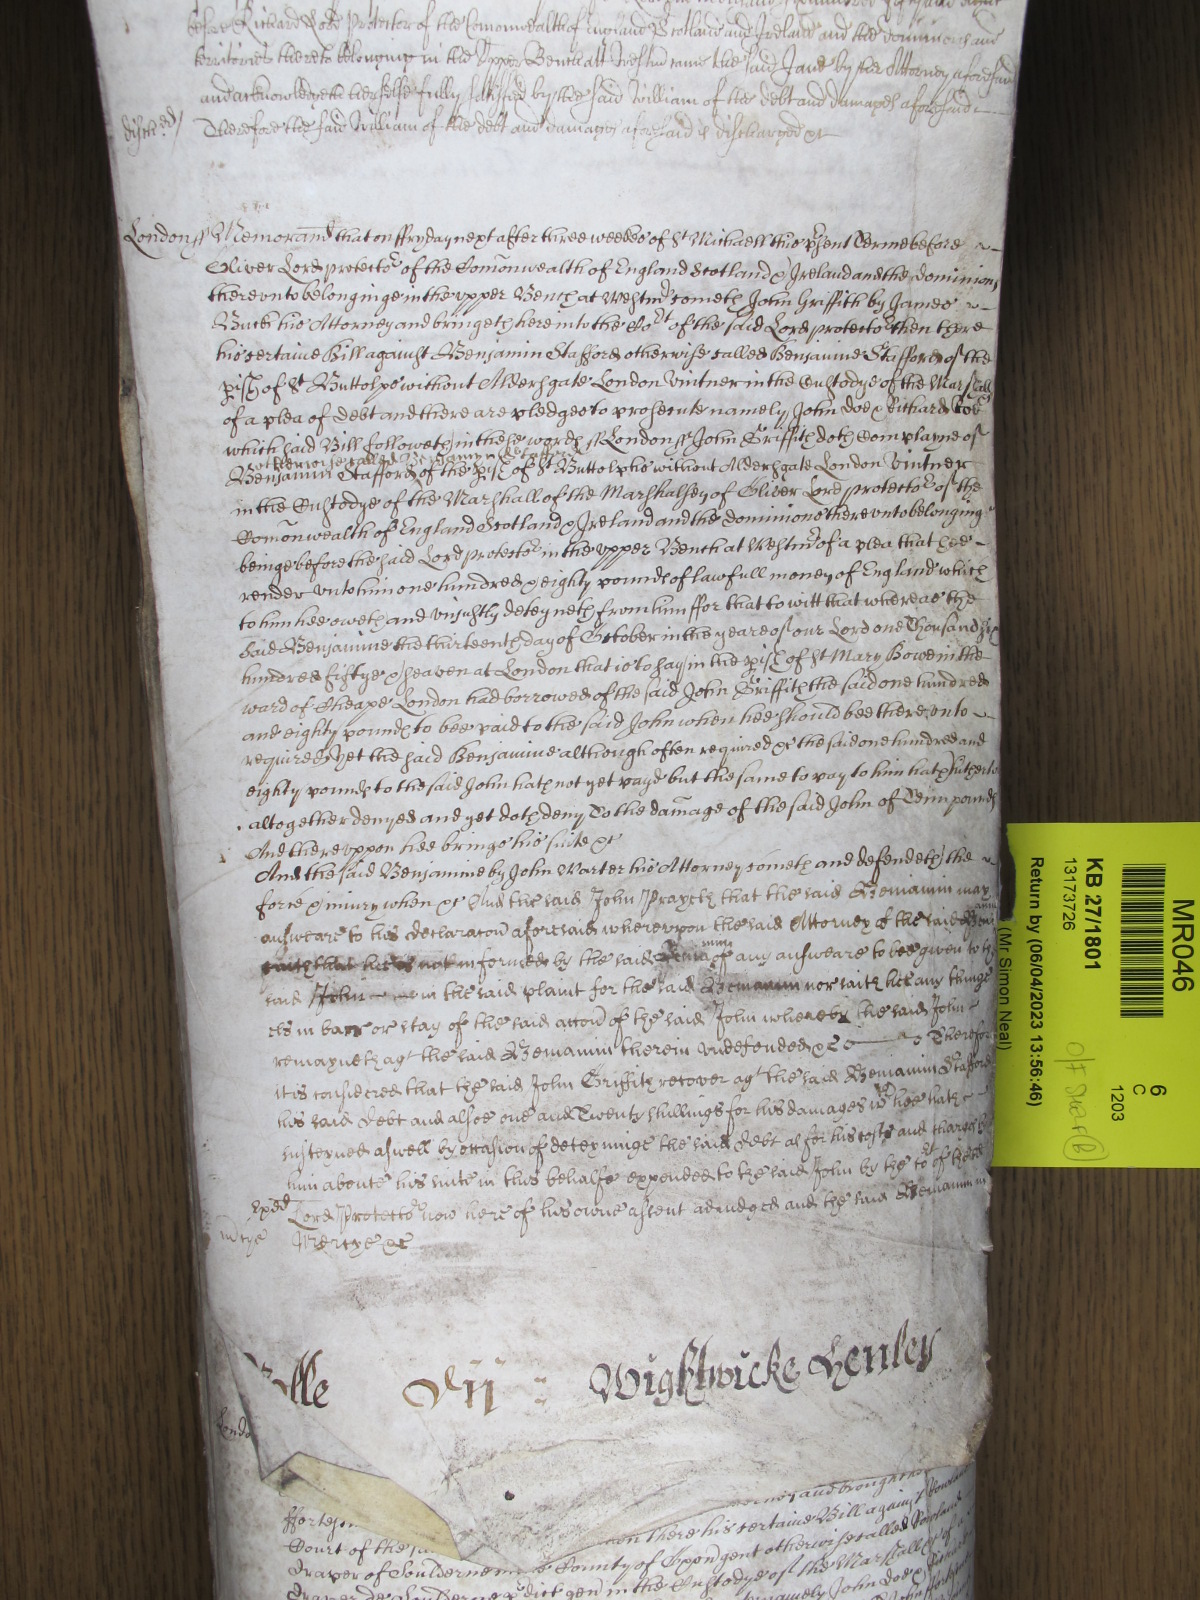 before Richard Lord Protector of the Comonwealth of England Scotland and Ireland and the dominions and
territories thereto belonging in the Upper Bench att Westm came the said Jane by her Attorney aforesaid
and acknowledgeth herselfe fully satisfied by the said William of the debt and damages aforesaid
Therefore the said William of the debt and damages aforesaid is discharged &c
London ss Memorand that on ffryday next after three weekes of St Michaell this psent Terme before
Oliver Lord protector of the Comonwealth of England Scotland & Ireland and the dominions
therevnto belonginge in the vpper Bench at Westmr cometh John Griffith by James
Buck his Attorney and bringeth here into the Cort of the said Lord protector then there
his certaine Bill against Benjamin Stafford otherwise called Benjamine Stafford of the
pish of St Buttolps without Aldersgate London vintner in the Custodye of the Marshall
of a plea of debt and there are pledges to prosecute namely John doe & Richard Roe
which said Bill followeth in these words ss London ss John Griffith doth Complayne of
otherwise called Benjamyn Stafford
Benjamin Stafford of the pish of St Buttolphs without Aldersgate London vintner
in the Custodye of the Marshall of the Marshalsey of Oliver Lord protector of the
Comonwealth of England Scotland & Ireland and the dominions therevnto belonging
beinge before the said Lord protector in the vpper Bench at Westmr of a plea that hee
render vnto him one hundred & eighty pounds of lawfull money of England which
to him hee oweth and vniustly deteyneth from him ffor that to witt that whereas the
said Benjamine the thirteenth day of October in the yeare of our Lord one Thousand six
hundred fiftye & seaven at London that is to say in the pish of St Mary Bowe in the
ward of Cheape London had borrowed of the said John Griffith the said one hundred
and eighty pounds to bee paid to the said John when hee should bee there vnto
required yet the said Benjamine although often required &c the said one hundred and
eighty pounds to the said John hath not yet payd but the same to pay to him hath hitherto
altogether denyed and yet doth deny To the damage of the said John of Tenn pounds
And therevppon hee brings his suite &c
And the said Benjamine by John Warter his Attorney cometh and defendeth the
force & iniury when &c And the said John Prayeth that the said Beniamin may
answeare to his declaracon aforesaid wherevpon the said Attorney of the said
informed by the said of any answeare to bee given to the
said John in the said plaint for the said Beniamin nor saith hee any thinge
els in barr or stay of the said accon of the said John whereby the said John
remayneth agt the said Beniamin therein vndefended &c Therefore
it is considered that the said John Griffith recover agt the said Beniamin Stafford
his said debt and alsoe one and Twenty shillings for his damages wch hee hath
susteyned aswell by occasion of deteyninge the said debt as for his costs and charges by
him aboute his suite in this behalfe expended to the said John by the cort of the said
Lord Protector now here of his owne assent adiudged and the said Beniamin in
Mercye &c
Wightwicke Henley
Londo
and brought
then there his certaine Bill against
Court of the County of gent otherwise called
draper of in the Custodye of the Marshall
namely John doe &
MR046
6
C
1203
KB 27/1801
13173726
Return by (06/04/2023 13:56:46)
(Mr Simon Neal)